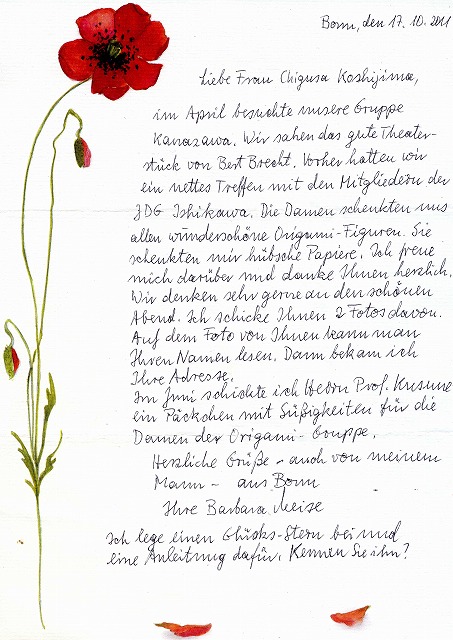 Bonn, den 17. 10. 2011
Liebe Frau Chigusa Koshijima,
im April besuchte unsere Gruppe
Kanazawa. Wir sahen das gute Theater-
stück von Bert Brecht. Vorher hatten wir
ein nettes Treffen mit den Mitgliedern der
JDG Ishikawa. Die Damen schenkten uns
allen wunderschöne Origami-Figuren. Sie
schenkten mir hübsche Papiere. Ich freue
mich darüber und danke Ihnen herzlich.
Wir denken sehr gerne an den schönen
Abend. Ich schicke Ihnen 2 Fotos davon.
Auf dem Foto von Ihnen kann man
Ihren Namen lesen. Dann bekam ich
Ihre Adresse.
Im Juni schickte ich Herrn Prof. Kusune
ein Päckchen mit Süßigkeiten für die
Damen der Origami-Gruppe.
Herzliche Grüße - auch von meinem
Mann - aus Bonn
Ihre Barbara Meise
Ich lege einen Glücks-Stern bei und
eine Anleitung dafür. Kennen Sie ihn?